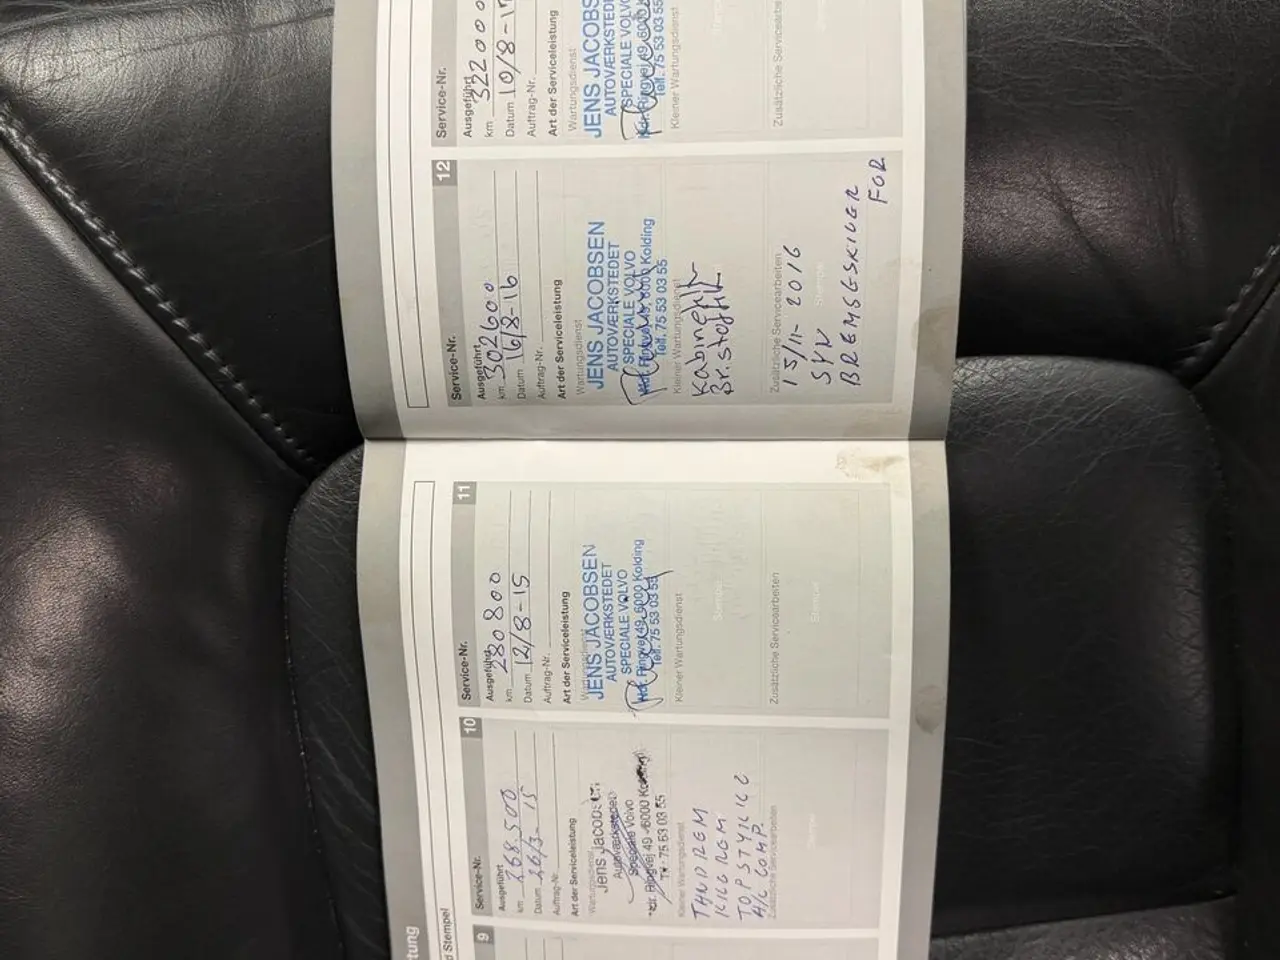 tung
d Stempel
9
Service-Nr. 10
Ausgeführt
km 268.500
Datum 26/3-15
Auftrag-Nr.
Art der Serviceleistung
Wartungsdienst
Jens Jacobsen
Autoværkstedet
Speciale Volvo
Ndr. Ringvej 49 - 6000 Kolding
Tlf. 75 53 03 55
Kleiner Wartungsdienst
TANDREM
KILEREM
TOPSTYKKE
A/C COMP.
Zusätzliche Servicearbeiten
Stempel
Service-Nr. 11
Ausgeführt
km 280800
Datum 12/8-15
Auftrag-Nr.
Art der Serviceleistung
Wartungsdienst
JENS JACOBSEN
AUTOVÆRKSTEDET
SPECIALE VOLVO
Ndr. Ringvej 49, 6000 Kolding
Telf. 75 53 03 55
Kleiner Wartungsdienst
Stempel
Zusätzliche Servicearbeiten
Stempel
Service-Nr. 12
Ausgeführt
km 302600
Datum 16/8-16
Auftrag-Nr.
Art der Serviceleistung
Wartungsdienst
JENS JACOBSEN
AUTOVÆRKSTEDET
SPECIALE VOLVO
Ndr. Ringvej 49, 6000 Kolding
Telf. 75 53 03 55
Kleiner Wartungsdienst
Kabinefilt
Br.stoffilt
Zusätzliche Servicearbeiten
15/11-2016
Stempel
SYN
BREMSESKIVER
FOR
Service-Nr.
Ausgeführt
km 322000
Datum 10/8-1
Auftrag-Nr.
Art der Serviceleistung
Wartungsdienst
JENS JACOBS
AUTOVÆRKSTEDE
SPECIALE VOLVO
Ndr. Ringvej 49, 6000
Telf. 75 53 03 55
Kleiner Wartungsdienst
Zusätzliche Servicearbeiten